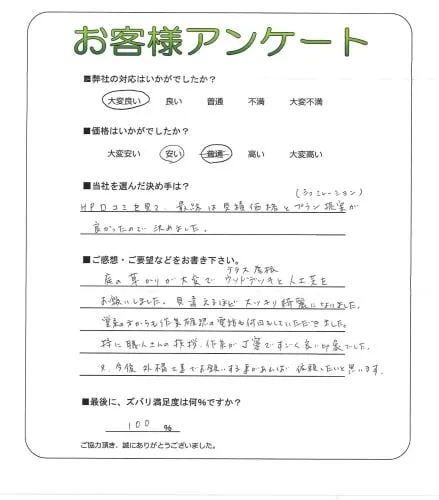 お客様アンケート
■弊社の対応はいかがでしたか？
大変良い 良い 普通 不満 大変不満
■価格はいかがでしたか？
大変安い 安い 普通 高い 大変高い
■当社を選んだ決め手は？
(シュミレーション)
HP口コミを見て、最終は見積価格とプラン提案が
良かったので決めました。
■ご感想・ご要望などをお書き下さい。
テラス屋根
庭の草かりが大変でウッドデッキと人工芝を
お願いしました。見違えるほどスッキリ綺麗になりました。
営業の方からも作業確認の電話も何回もしていただきました。
特に職人さんの挨拶、作業が丁寧ですごく良い印象でした。
又、今後外構工事でお願いする事があれば依頼したいと思います。
■最後に、ズバリ満足度は何%ですか？
100 %
ご協力頂き、誠にありがとうございました。